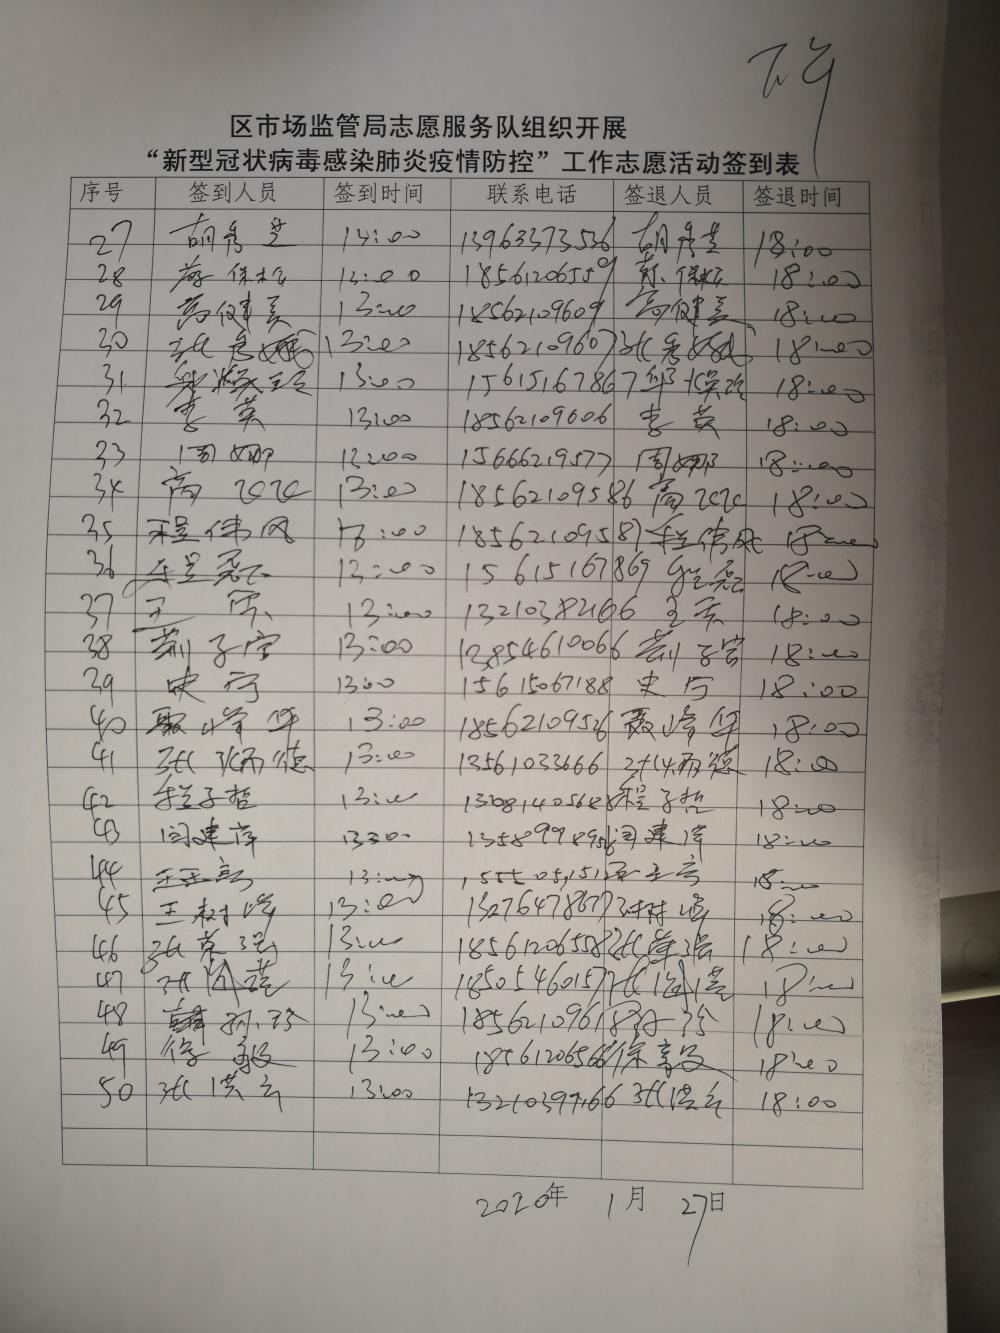 下午
区市场监管局志愿服务队组织开展
“新型冠状病毒感染肺炎疫情防控”工作志愿活动签到表
序号 签到人员 签到时间 联系电话 签退人员 签退时间
27 胡秀芝 14:00 13963373536 胡秀芝 18:00
28 13:00 18561206559 18:00
29 高健美 13:00 18562109609 高健美 18:00
30 13:00 18562109607 18:00
31 13:00 15615167867 18:00
32 李英 13:00 18562109606 李英 18:00
33 周娜 13:00 15666219577 周娜 18:00
34 13:00 18562109586 18:00
35 程伟风 13:00 18562109587 程伟风 18:00
36 程磊 13:00 15615167869 程磊 18:00
37 王军 13:00 13210382166 王军 18:00
38 荆子宁 13:00 荆子宁 18:00
39 史宁 13:00 15615067188 史宁 18:00
40 聂峰华 13:00 18562109526 聂峰华 18:00
41 张炳德 13:00 13561033666 张炳德 18:00
42 程子哲 13:00 程子哲 18:00
43 闫建萍 1300 闫建萍 18:00
44 13:00 18:00
45 王树峰 13:00 王树峰 18:00
46 张荣强 13:00 18561206558 18:00
47 13:00 18505460157 18:00
48 13:00 18562109618 18:00
49 徐毅 13:00 18561206566 徐毅 18:00
50 张洪云 13:00 张洪云 18:00
2020年 1月 27日